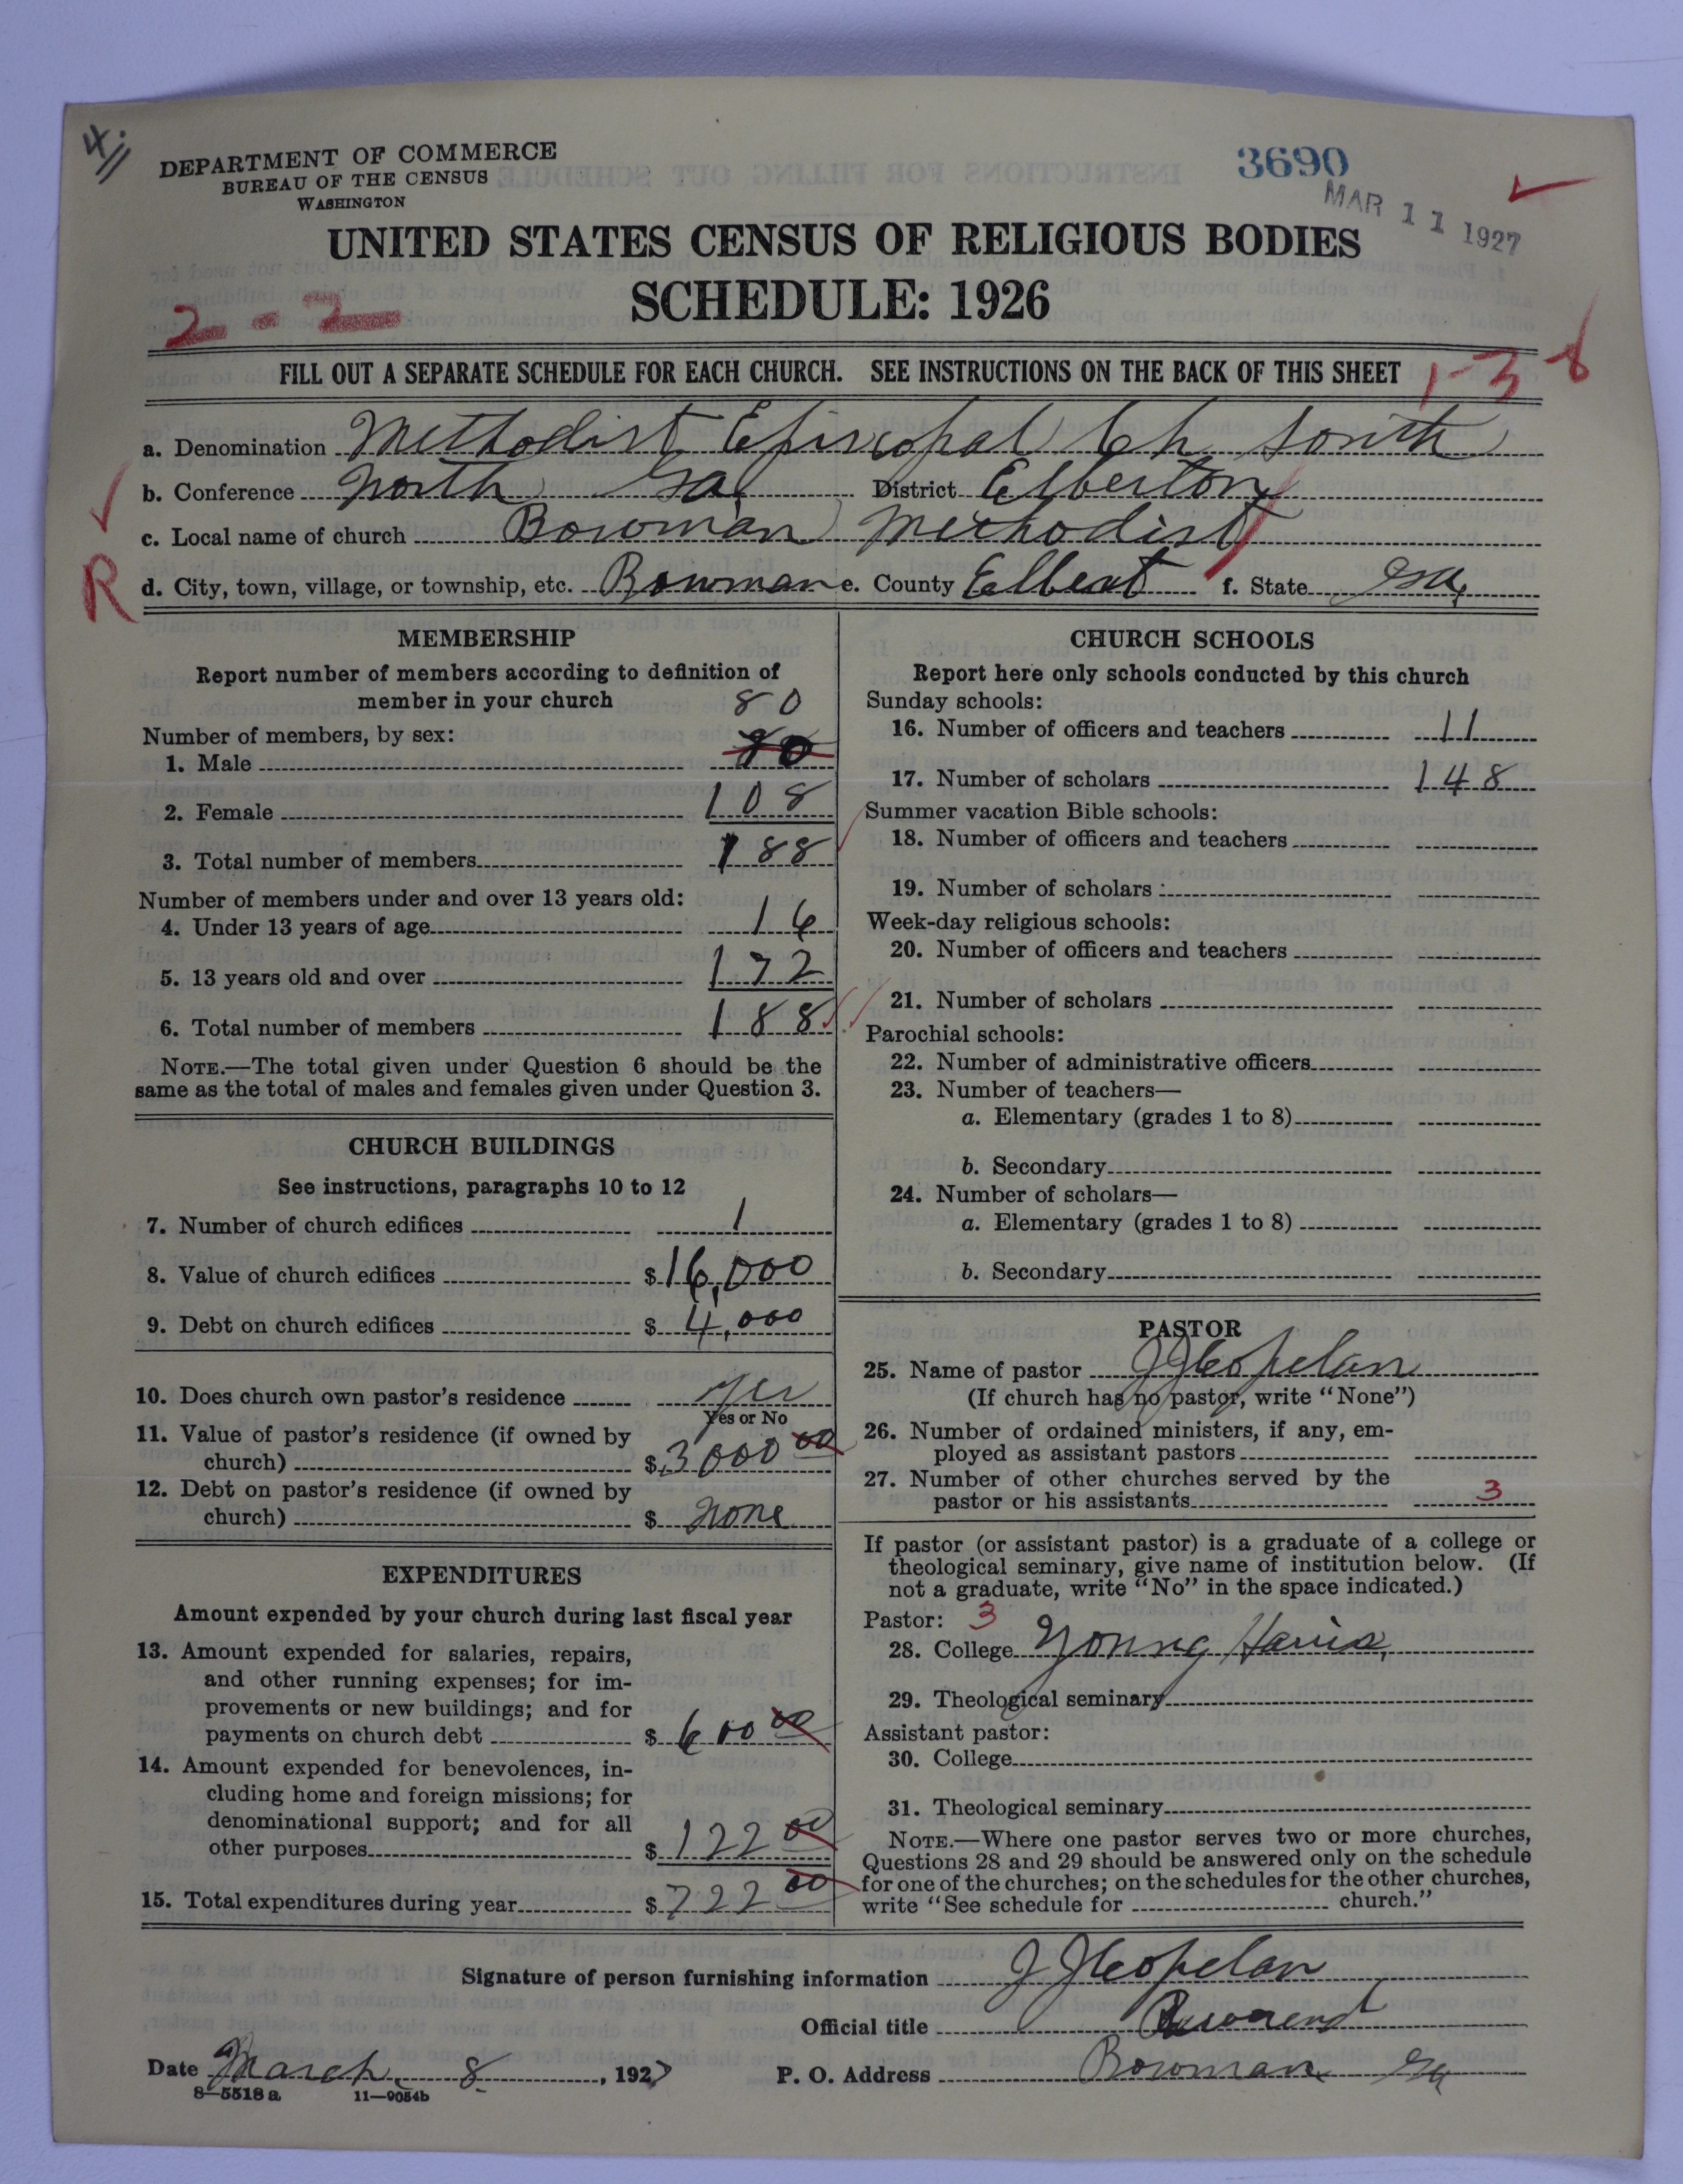 4j
DEPARTMENT OF COMMERCE
BUREAU OF THE CENSUS
WASHINGTON
3690
MAR 11 1927
UNITED STATES CENSUS OF RELIGIOUS BODIES
SCHEDULE: 1926
2-2
FILL OUT A SEPARATE SCHEDULE FOR EACH CHURCH. SEE INSTRUCTIONS ON THE BACK OF THIS SHEET
1-3-8
a. Denomination Methodist Episcopal Ch South
b. Conference North Ga District Elberton
c. Local name of church Bowman Methodist
R
d. City, town, village, or township, etc. Bowman e. County Elbert f. State Ga
MEMBERSHIP
Report number of members according to definition of
member in your church
80
Number of members, by sex:
1. Male 80
2. Female 108
3. Total number of members 188
Number of members under and over 13 years old:
4. Under 13 years of age 16
5. 13 years old and over 172
6. Total number of members 188
NOTE.—The total given under Question 6 should be the
same as the total of males and females given under Question 3.
CHURCH BUILDINGS
See instructions, paragraphs 10 to 12
7. Number of church edifices 1
8. Value of church edifices $16,000
9. Debt on church edifices $4,000
10. Does church own pastor's residence yes
Yes or No
11. Value of pastor's residence (if owned by
church) $3000 00
12. Debt on pastor's residence (if owned by
church) $ none
EXPENDITURES
Amount expended by your church during last fiscal year
13. Amount expended for salaries, repairs,
and other running expenses; for im-
provements or new buildings; and for
payments on church debt $600 00
14. Amount expended for benevolences, in-
cluding home and foreign missions; for
denominational support; and for all
other purposes $122 00
15. Total expenditures during year $722 00
CHURCH SCHOOLS
Report here only schools conducted by this church
Sunday schools:
16. Number of officers and teachers 11
17. Number of scholars 148
Summer vacation Bible schools:
18. Number of officers and teachers
19. Number of scholars
Week-day religious schools:
20. Number of officers and teachers
21. Number of scholars
Parochial schools:
22. Number of administrative officers
23. Number of teachers—
a. Elementary (grades 1 to 8)
b. Secondary
24. Number of scholars—
a. Elementary (grades 1 to 8)
b. Secondary
PASTOR
25. Name of pastor J J Copelan
(If church has no pastor, write "None")
26. Number of ordained ministers, if any, em-
ployed as assistant pastors
27. Number of other churches served by the
pastor or his assistants 3
If pastor (or assistant pastor) is a graduate of a college or
theological seminary, give name of institution below. (If
not a graduate, write "No" in the space indicated.)
Pastor: 3
28. College Young Harris,
29. Theological seminary
Assistant pastor:
30. College
31. Theological seminary
NOTE.—Where one pastor serves two or more churches,
Questions 28 and 29 should be answered only on the schedule
for one of the churches; on the schedules for the other churches,
write "See schedule for church."
Signature of person furnishing information J J Copelan
Official title Reverend
Date March 8, 1927 P. O. Address Bowman Ga
8-5518 a 11-9054b